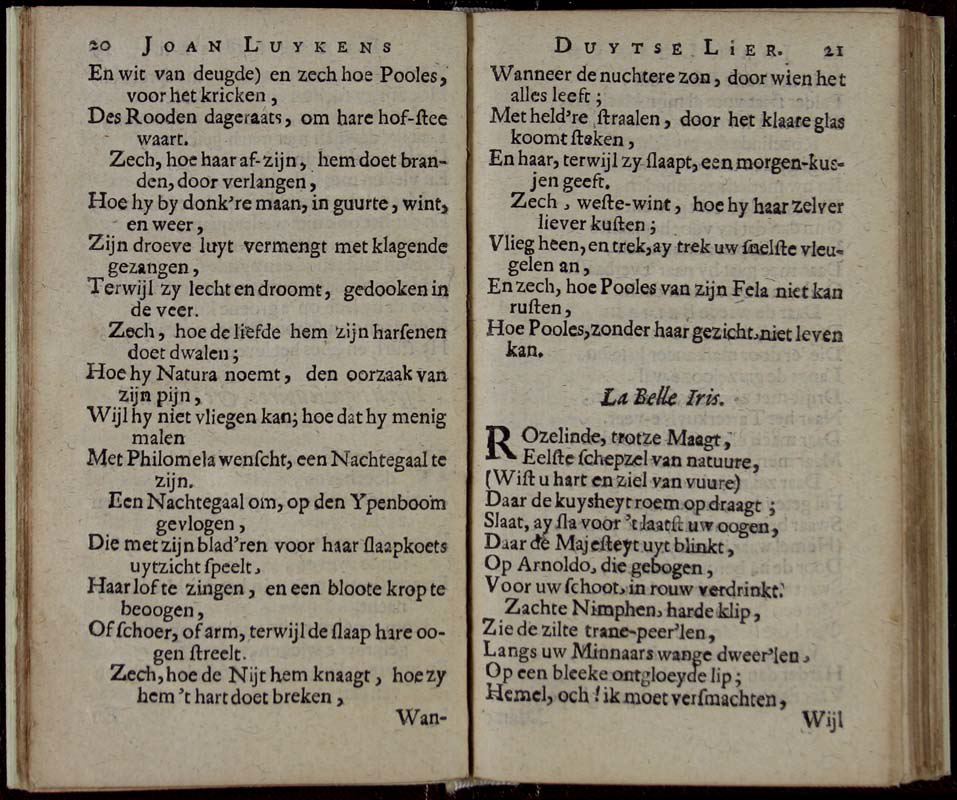 20 JOAN LUYKENS
En wit van deugde) en zech hoe Pooles,
voor het kricken,
Des Rooden dageraats, om hare hof-ſtee
waart.
Zech, hoe haar af-zijn, hem doet bran-
den, door verlangen,
Hoe hy by donk're maan, in guurte, wint,
en weer,
Zijn droeve luyt vermengt met klagende
gezangen,
Terwijl zy lecht en droomt, gedooken in
de veer.
Zech, hoe de liefde hem zijn harſenen
doet dwalen;
Hoe hy Natura noemt, den oorzaak van
zijn pijn,
Wijl hy niet vliegen kan; hoe dat hy menig
malen
Met Philomela wenſcht, een Nachtegaal te
zijn.
Een Nachtegaal om, op den Ypenboom
gevlogen,
Die met zijn blad'ren voor haar ſlaapkoets
uytzicht ſpeelt,
Haar lof te zingen, en een bloote krop te
beoogen,
Of ſchoer, of arm, terwijl de ſlaap hare oo-
gen ſtreelt.
Zech, hoe de Nijt hem knaagt, hoe zy
hem 't hart doet breken,
Wan-
DUYTSE LIER. 21
Wanneer de nuchtere zon, door wien het
alles leeft;
Met held're ſtraalen, door het klaare glas
koomt ſteken,
En haar, terwijl zy ſlaapt, een morgen-kus-
jen geeft.
Zech, weſte-wint, hoe hy haar zelver
liever kuſten;
Vlieg heen, en trek, ay trek uw ſnelſte vleu-
gelen an,
En zech, hoe Pooles van zijn Fela niet kan
ruſten,
Hoe Pooles, zonder haar gezicht, niet leven
kan.
La Belle Iris.
ROzelinde, trotze Maagt,
Eelſte ſchepzel van natuure,
(Wiſt u hart en ziel van vuure)
Daar de kuysheyt roem op draagt;
Slaat, ay ſla voor 't laatſt uw oogen,
Daar de Majeſteyt uyt blinkt,
Op Arnoldo, die gebogen,
Voor uw ſchoot, in rouw verdrinkt.
Zachte Nimphen, harde klip,
Zie de zilte trane-peer'len,
Langs uw Minnaars wange dweer'len,
Op een bleeke ontgloeyde lip;
Hemel, och! ik moet verſmachten,
Wijl